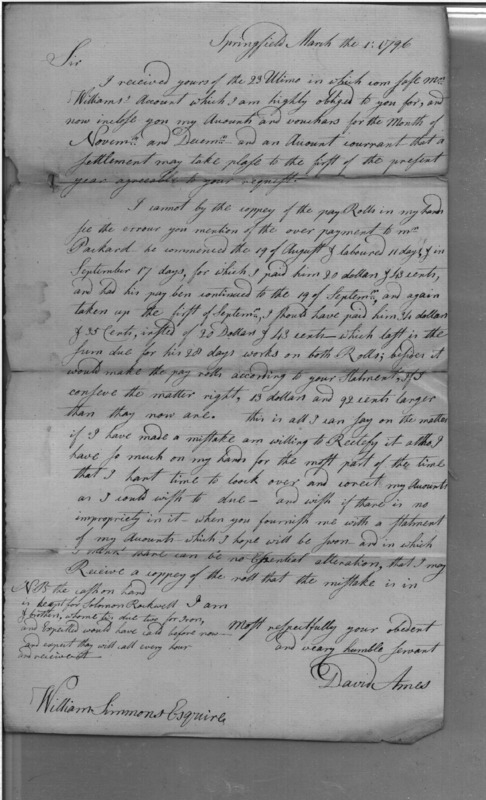 Springfield March the 1: 1796
Sir
I received yours of the 23 Ultimo in which com safe Mr.
Williams' Acount which I am highly obliged to you for, and
now inclose you my Acounts and vouchars for the Month of
Novemr. and Decemr. and an Acount courrant that a
settlement may take plase to the first of the present
year agreeable to your request.
I cannot by the coppey of the pay Rolls in my hands
see the errour you mention of the over payment to Mr.
Packard he commenced the 19 of August & laboured 11 days, & in
September 17 days, for which I paid him 20 dollars & 43 cents,
and had his pay ben continued to the 19 of Septemr. and again
taken up the first of Septemr., I should have paid him 34 dollars
& 35 Cents, insted of 20 Dollars & 43 cents — which last is the
sum due for his 28 days works on both Rolls; besides it
would make the pay rolls according to your Statment, if I
conseve the matter right, 13 dollars and 92 cents larger
than thay now are. this is all I can say on the matter
if I have made a mistake am willing to Rectefy it altho I
have so much on my hands for the most part of the time
that I hant time to look over and corect my Acounts
as I could wish to due — and wish if there is no
impropriety in it — when you fournish me with a statment
of my Acounts which I hope will be soon and in which
I meant thare can be no Essential alteration, that I may
Receive a coppey of the roll that the mistake is in
NB the cash on hand
is keapt for Solomon Rockwell
& brothers, whome tis due two for Iron,
and Expected would have cald before now —
and expect thay will call every hour
and receive it
I am
Most respectfully your obedent
and veary humble servant
David Ames
William Simmons Esquire